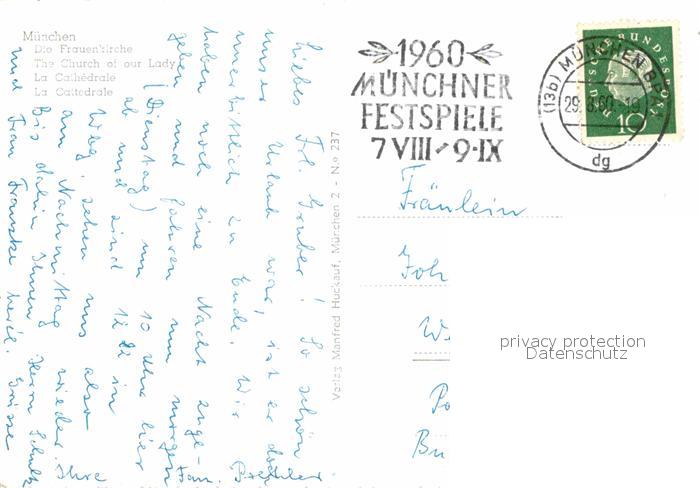 München
Die Frauenkirche
The Church of our Lady
La Cathédrale
La Cattedrale
1960
MÜNCHNER
FESTSPIELE
7 VIII - 9·IX
(13b) MÜNCHEN BP
29. 8. 60 - 19
dg
DEUTSCHE BUNDESPOST
10
Verlag Manfred Huckauf, München 2 - N.º 237
Liebes Frl. Gruber! So schön
unser Urlaub war, ist er doch
unerbittlich zu Ende. Wir
haben noch eine Nacht ange-
geben und fahren nun morgen
(Dienstag) um 10 Uhr hier
ab und sind 12 in
Wbg. sehen uns also
am Nachmittag wieder.
Bis dahin Ihnen, Herrn Schultz
und Frau Franzke herzl. Grüsse
Ihre
Fräulein
Joh
W
Po
Bu
privacy protection
Datenschutz